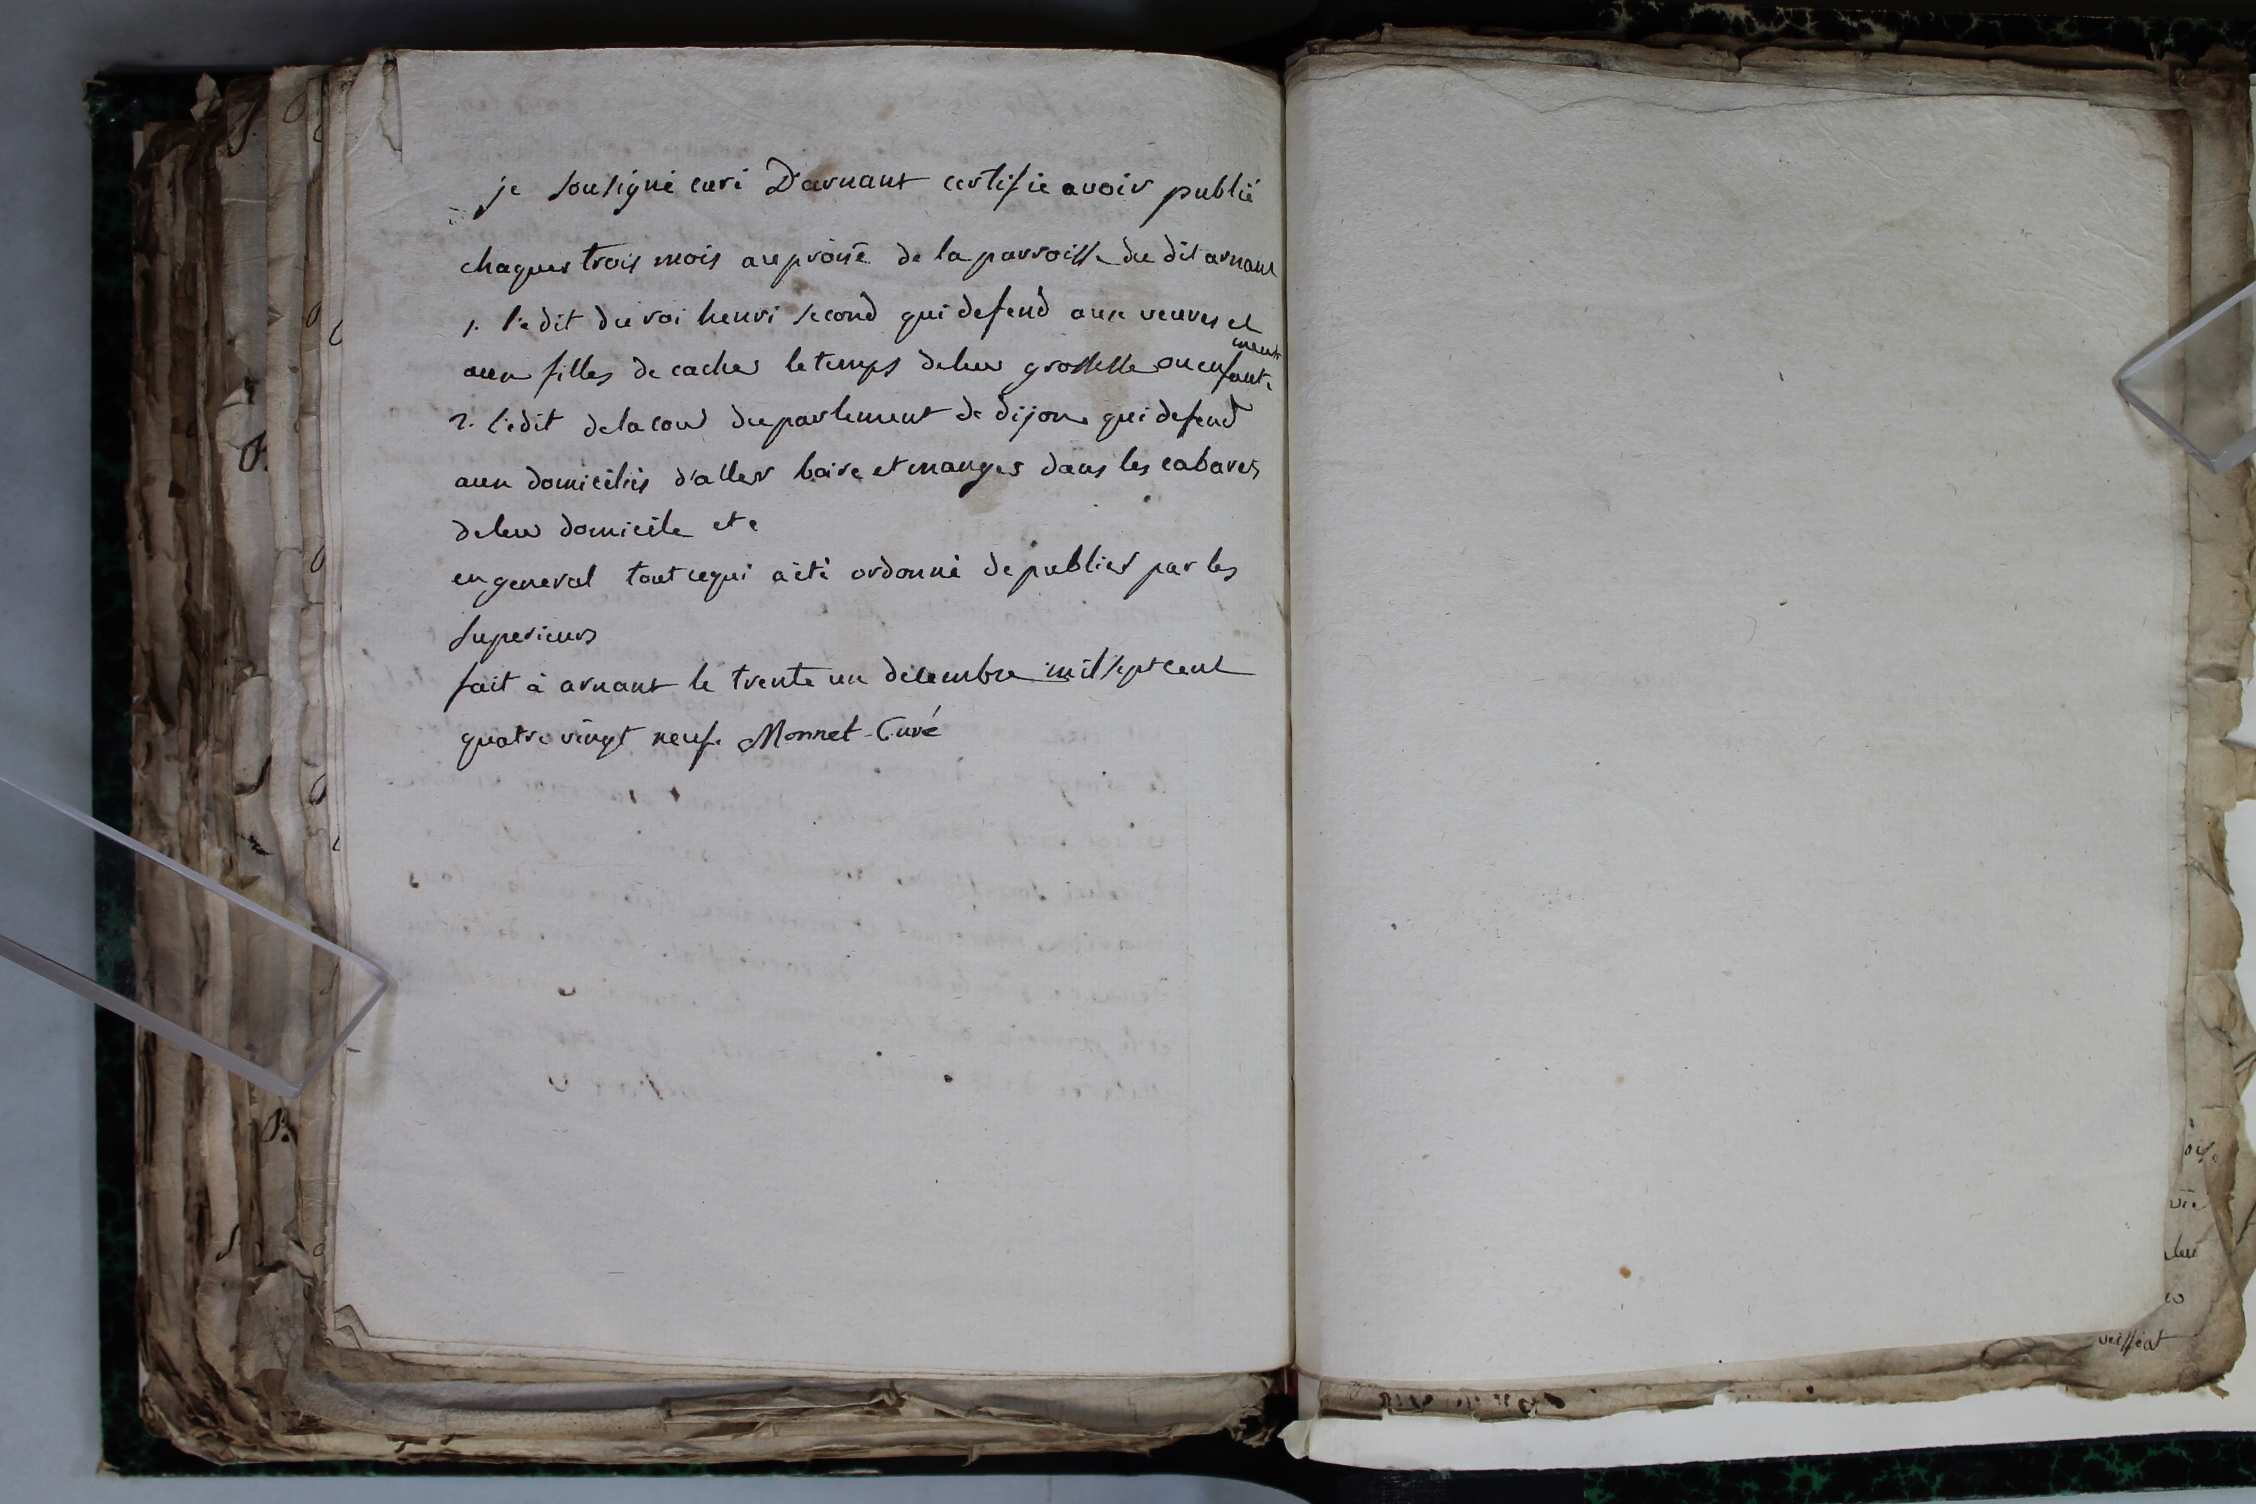 je sousigné curé D'arnant certifie avoir publié
chaques trois mois au prône de la parroisse du dit arnant
1. l'edit du roi henri second qui defend aux veuves et
aux filles de cacher le temps de leur grossesse ou enfante
ment
2. l'edit de la cour du parlement de dijon qui defend
aux domiciliés d'aller boire et manger dans les cabarets
de leur domicile etc
en general tout ce qui a été ordonné de publier par les
superieurs
fait à arnant le trente un decembre mil sept cent
quatre vingt neuf. Monnet Curé